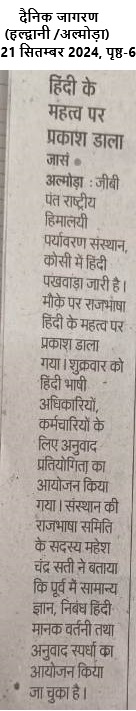 दैनिक जागरण
(हल्द्वानी /अल्मोड़ा)
21 सितम्बर 2024, पृष्ठ-6
हिंदी के
महत्व पर
प्रकाश डाला
जासं ●
अल्मोड़ा : जीबी
पंत राष्ट्रीय
हिमालयी
पर्यावरण संस्थान,
कोसी में हिंदी
पखवाड़ा जारी है।
मौके पर राजभाषा
हिंदी के महत्व पर
प्रकाश डाला
गया। शुक्रवार को
हिंदी भाषी
अधिकारियों,
कर्मचारियों के
लिए अनुवाद
प्रतियोगिता का
आयोजन किया
गया। संस्थान की
राजभाषा समिति
के सदस्य महेश
चंद्र सती ने बताया
कि पूर्व में सामान्य
ज्ञान, निबंध हिंदी
मानक वर्तनी तथा
अनुवाद स्पर्धा का
आयोजन किया
जा चुका है।